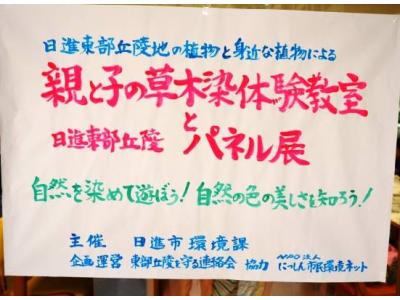 日進東部丘陵地の植物と身近な植物による
親と子の草木染体験教室
と
日進東部丘陵 パネル展
自然を染めて遊ぼう! 自然の色の美しさを知ろう!
主催 日進市環境課
企画運営 東部丘陵を守る連絡会 協力 NPO法人 にっしん市民環境ネット